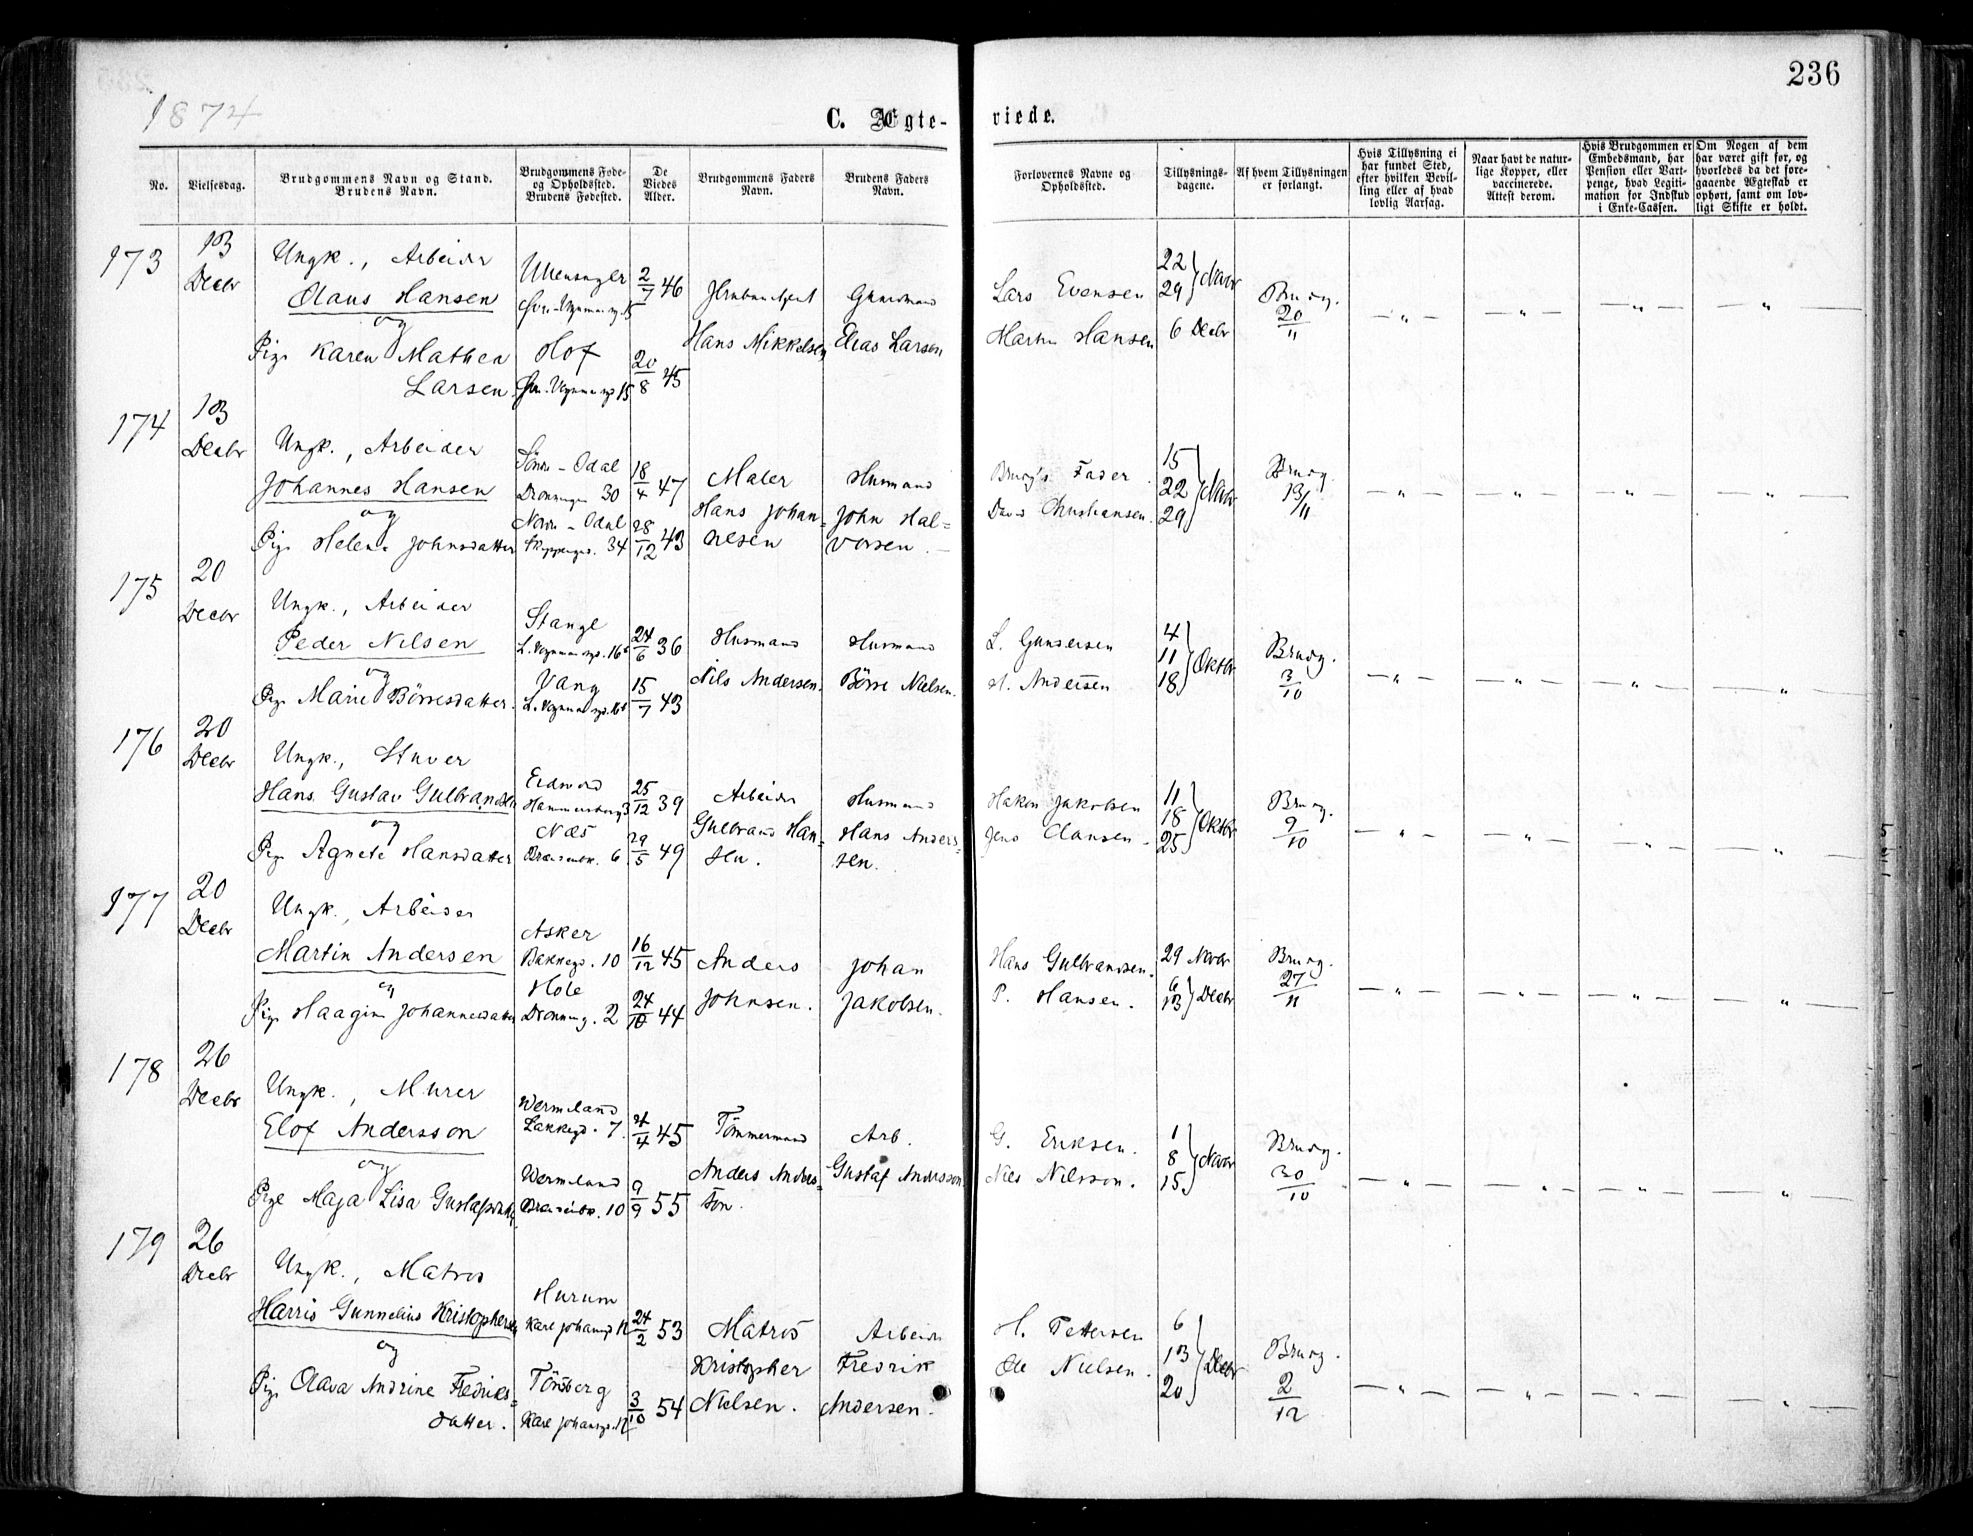 236
1874
C. Ægte-
viede.
No.
Vielsesdag.
Brudgommens Navn og Stand.
Brudens Navn.
Brudgommens Føde-
og Opholdssted.
Brudens Fødested.
De
Viedes
Alder.
Brudgommens Faders
Navn.
Brudens Faders
Navn.
Forlovernes Navne og
Opholdssted.
Tillysnings-
dagene.
Af hvem Tillysningen
er forlangt.
Hvis Tillysning ei
har fundet Sted,
efter hvilken Bevil-
ling eller af hvad
lovlig Aarsag.
Naar havt de natur-
lige Kopper, eller
vaccinerede.
Attest derom.
Hvis Brudgommen er
Embedsmand, har
Pension eller Vart-
penge, hvad Legiti-
mation for Indskud
i Enke-Cassen.
Om Nogen af dem
har været gift før, og
hvorledes da det fore-
gaaende Ægteskab er
ophørt, samt om lov-
ligt Skifte er holdt.
173
13
Decbr
Ungk., Arbeider
Olaus Hansen
og
Pige Karen Mathea
Larsen
Ullensager
Hof
2/7 46
20/8 45
Hans Mikkelsen
Gaardmand
Elias Larsen
Lars Evensen
Martin Hansen
22
29 Novbr
6 Decbr
Brudg.
20/11
174
13
Decbr
Ungk., Arbeider
Johannes Hansen
og
Pige Helene Johnsdatter
Söndre-Odal
Dronningen 30
Nordre-Odal
34
18/4 47
28/12 43
Maler
Hans Johan=
nesen
Husmand
John Hal=
vorsen.
Brudg's Fader
Christiansen.
15
22
29
Novbr
Brudg.
13/11
175
20
Decbr
Ungk., Arbeider
Peder Nilsen
og
Pige Marie Börresdatter.
Stange
Vang
24/6 36
15/7 43
Husmand
Nils Andersen.
Husmand
Börre Nielsen.
L. Gundersen
A. Andersen
4
11
18
Oktbr
Brudg.
3/10
176
20
Decbr
Ungk., Stuver
Hans Gustav Gulbrandsen
og
Pige Agnete Hansdatter
Eidsvold
Næs
6
25/12 39
29/5 49
Arbeider
Gulbrand Han=
sen.
Husmand
Hans Anders=
sen.
Hakon Jakobsen
Jens Clausen
11
18
25
Oktbr
Brudg.
9/10
177
20
Decbr
Ungk., Arbeider
Martin Andersen
og
Pige Haagine Johannesdatter
Asker
Bakkegd. 10
Hole
Dronning. 2
16/12 45
24/10 44
Anders
Johnsen.
Johan
Jakobsen.
Hans Gulbrandsen.
P. Hansen.
29 Novbr
6
13 Decbr
Brudg.
27/11
178
26
Decbr
Ungk., Murer
Elof Andersson
og
Pige Maja Lisa Gustafsdatter
Wermland
Lakkegd. 7.
Wermland
10
4/4 45
9/9 55
Tömmermand
Anders Anders=
son.
Arb.
Gustaf Andersson.
G. Eriksen.
Nils Nilsson.
1
8
15
Novbr
Brudg.
30/10
179
26
Decbr
Ungk., Matros
Harris Gunnelius Kristophersen
og
Pige Olava Andrine Fredriks=
datter.
Hurum
Karl Johansgd 12
Tönsberg
Karl Johansgd. 12
24/2 53
3/10 54
Matros
Kristopher
Nielsen.
Arbeider
Fredrik
Andersen.
H. Pettersen
Ole Nielsen.
6
13
20
Decbr
Brudg.
2/12